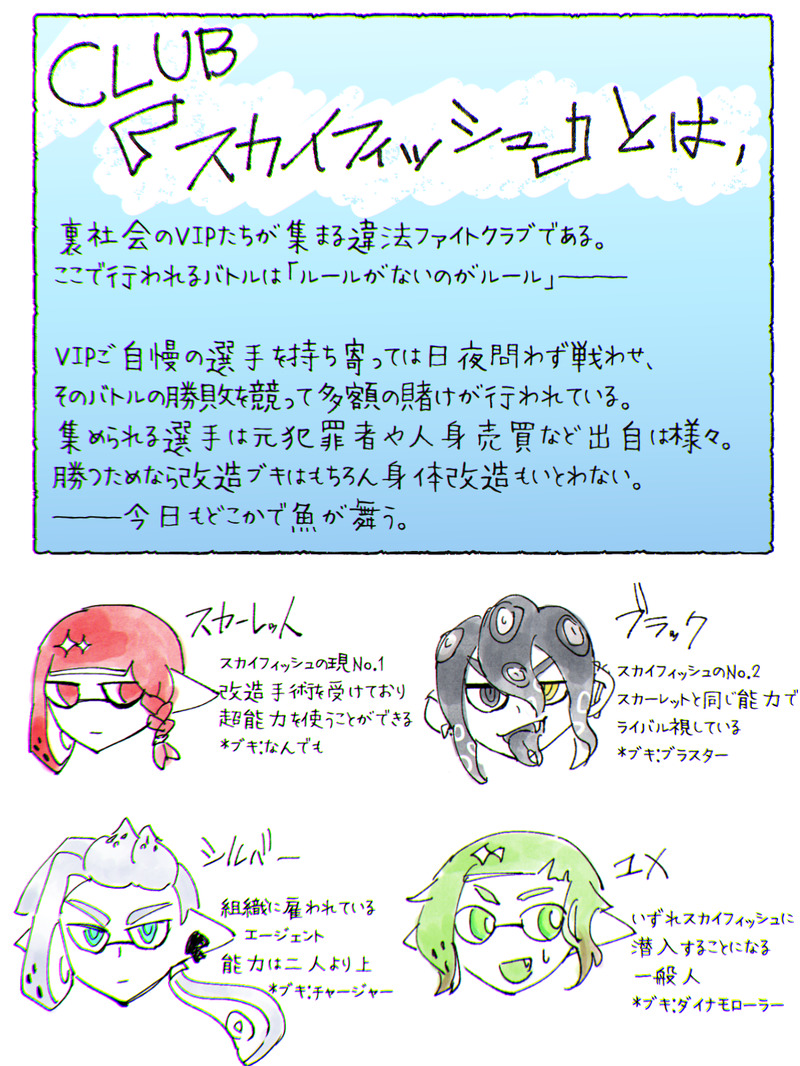 CLUB
『スカイフィッシュ』とは,
裏社会のVIPたちが集まる違法ファイトクラブである。
ここで行われるバトルは「ルールがないのがルール」───
VIPご自慢の選手を持ち寄っては日夜問わず戦わせ、
そのバトルの勝敗を競って多額の賭けが行われている。
集められる選手は元犯罪者や人身売買など出自は様々。
勝つためなら改造ブキはもちろん身体改造もいとわない。
───今日もどこかで魚が舞う。
スカーレット
スカイフィッシュの現No.1
改造手術を受けており
超能力を使うことができる
*ブキ:なんでも
ブラック
スカイフィッシュのNo.2
スカーレットと同じ能力で
ライバル視している
*ブキ:ブラスター
シルバー
組織に雇われている
エージェント
能力は二人より上
*ブキ:チャージャー
ユメ
いずれスカイフィッシュに
潜入することになる
一般人
*ブキ:ダイナモローラー